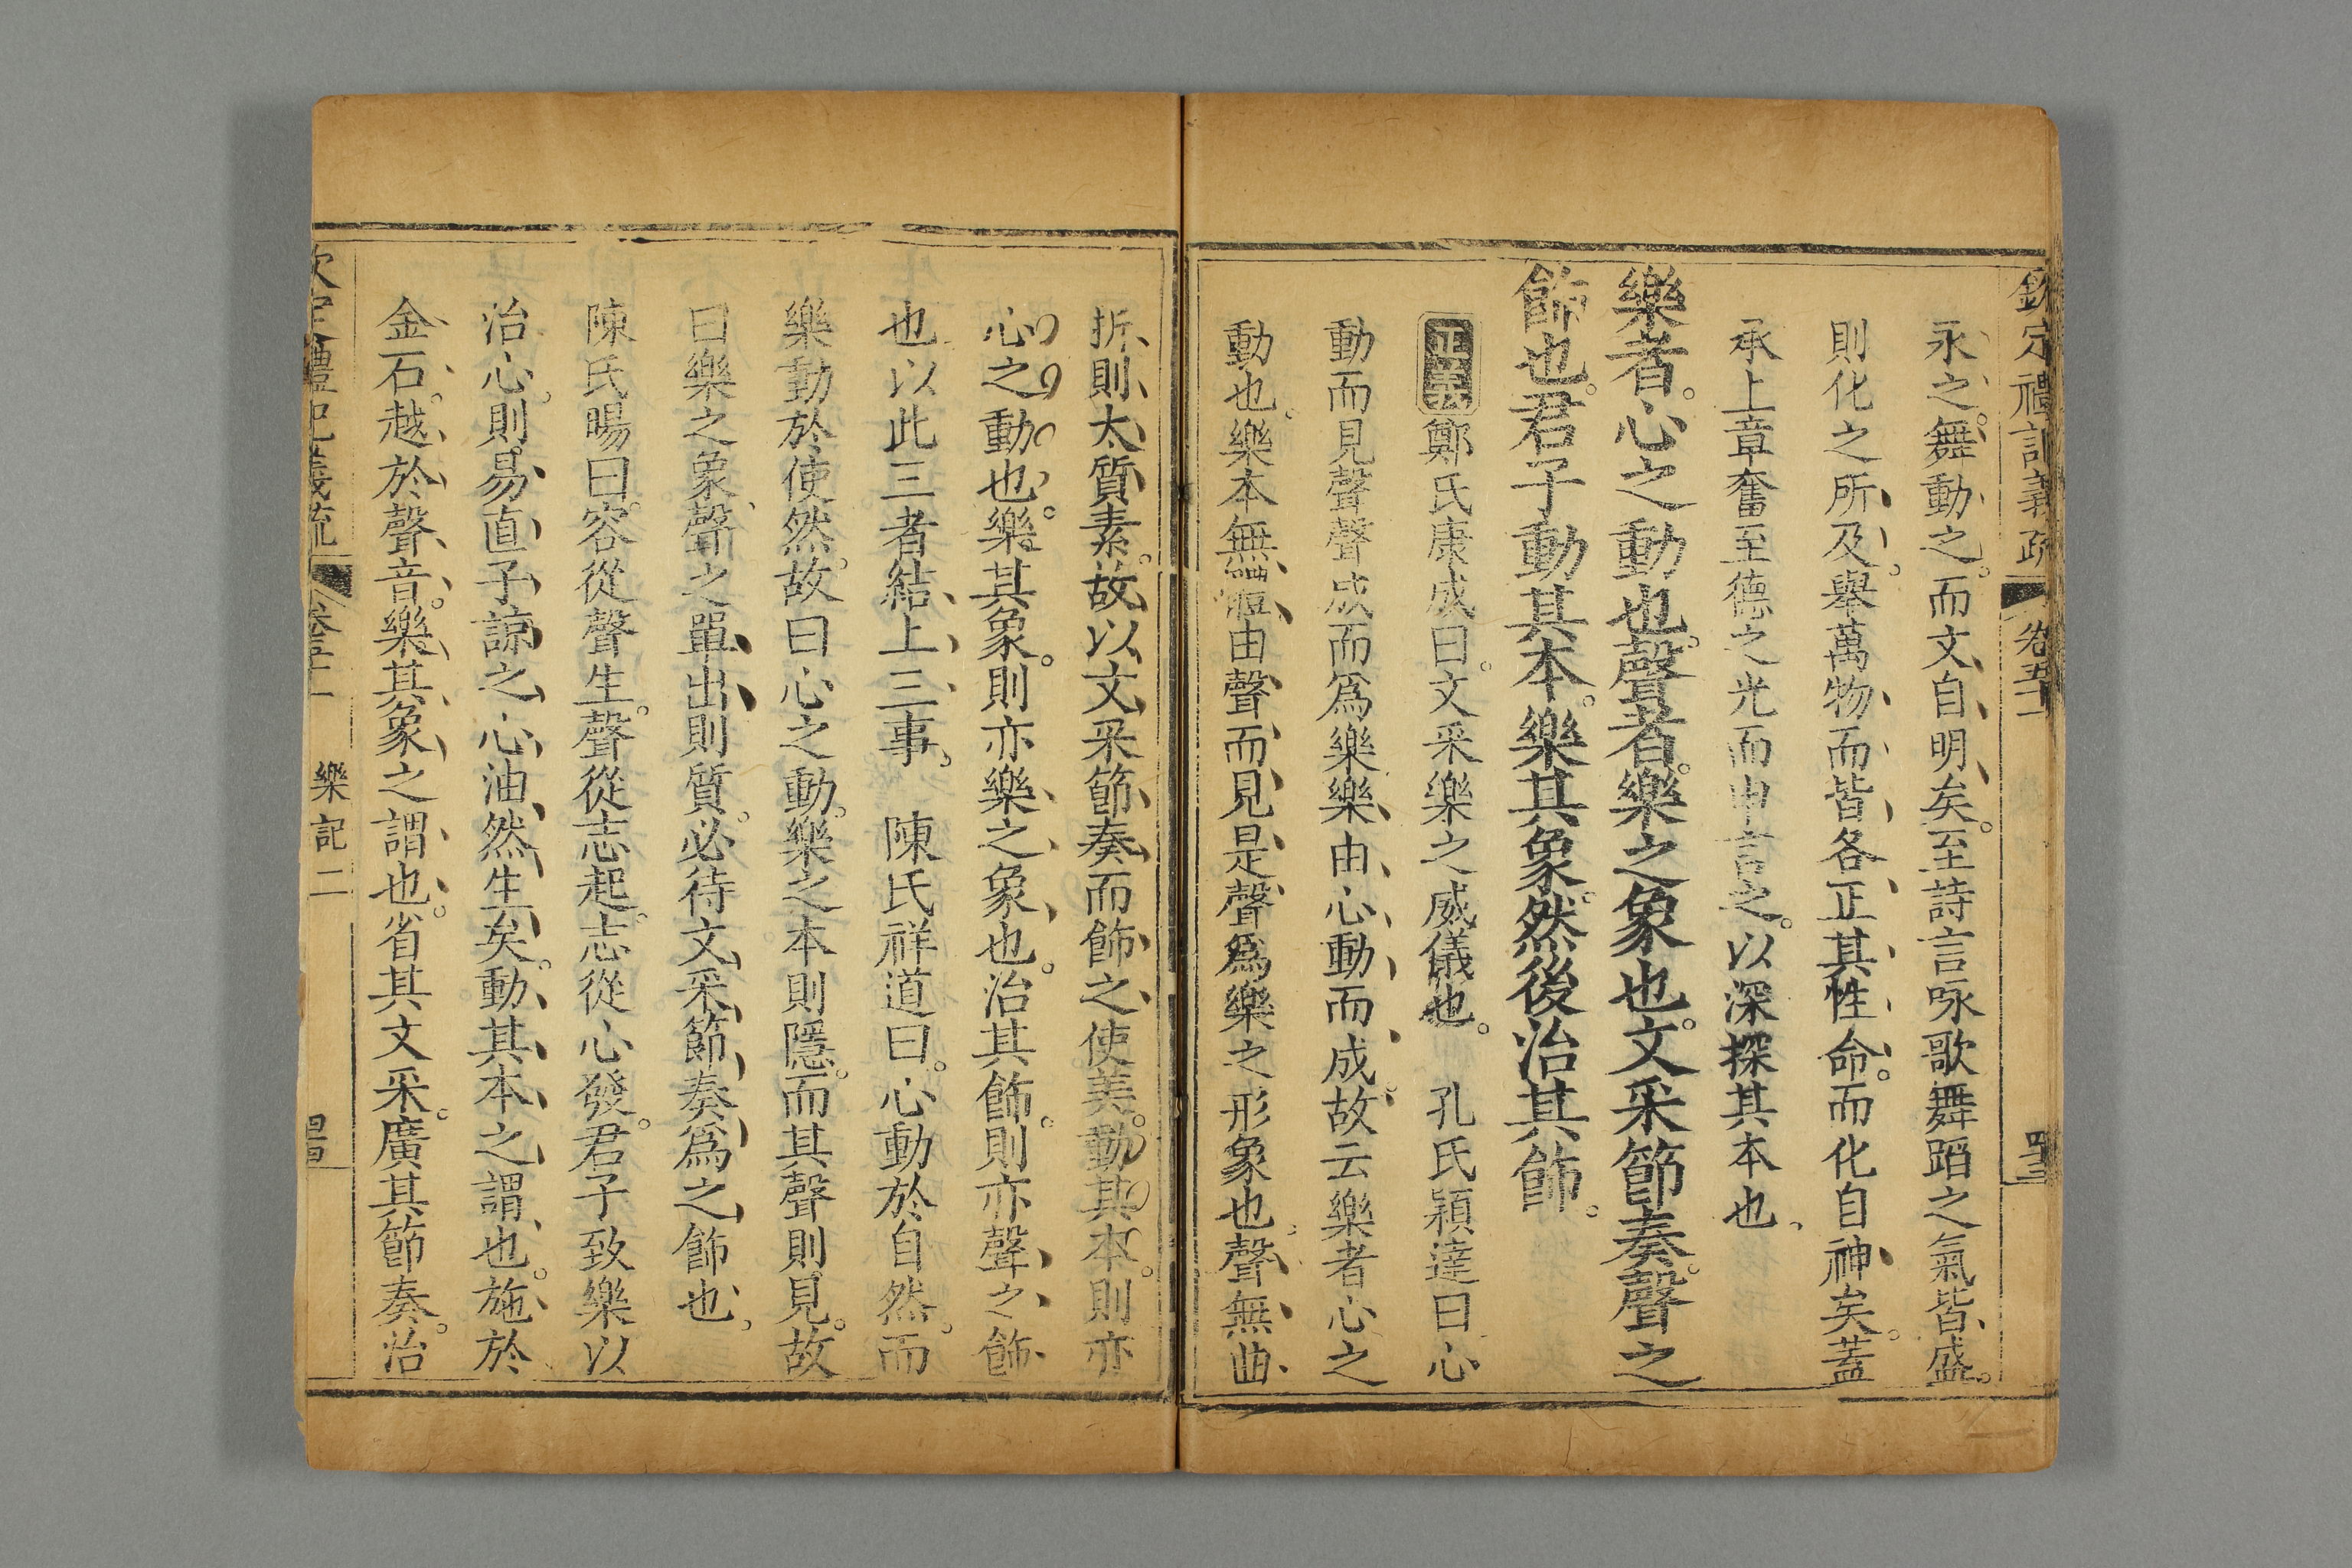 欽定禮記義疏 卷五十一 四十三
永之舞動之而文自明矣至詩言咏歌舞蹈之氣皆盛
則化之所及舉萬物而皆各正其性命而化自神矣蓋
承上章奮至德之光而申言之以深探其本也
樂者心之動也聲者樂之象也文采節奏聲之
飾也君子動其本樂其象然後治其飾
正義鄭氏康成曰文采樂之威儀也 孔氏穎達曰心
動而見聲聲成而爲樂樂由心動而成故云樂者心之
動也樂本無體由聲而見是聲爲樂之形象也聲無曲
折則太質素故以文采節奏而飾之使美動其本則亦
心之動也樂其象則亦樂之象也治其飾則亦聲之飾
也以此三者結上三事 陳氏祥道曰心動於自然而
樂動於使然故曰心之動樂之本則隱而其聲則見故
曰樂之象聲之單出則質必待文采節奏爲之飾也
陳氏暘曰容從聲生聲從志起志從心發君子致樂以
治心則易直子諒之心油然生矣動其本之謂也施於
金石越於聲音樂其象之謂也省其文采廣其節奏治
欽定禮記義疏 卷五十一 樂記二 四十四